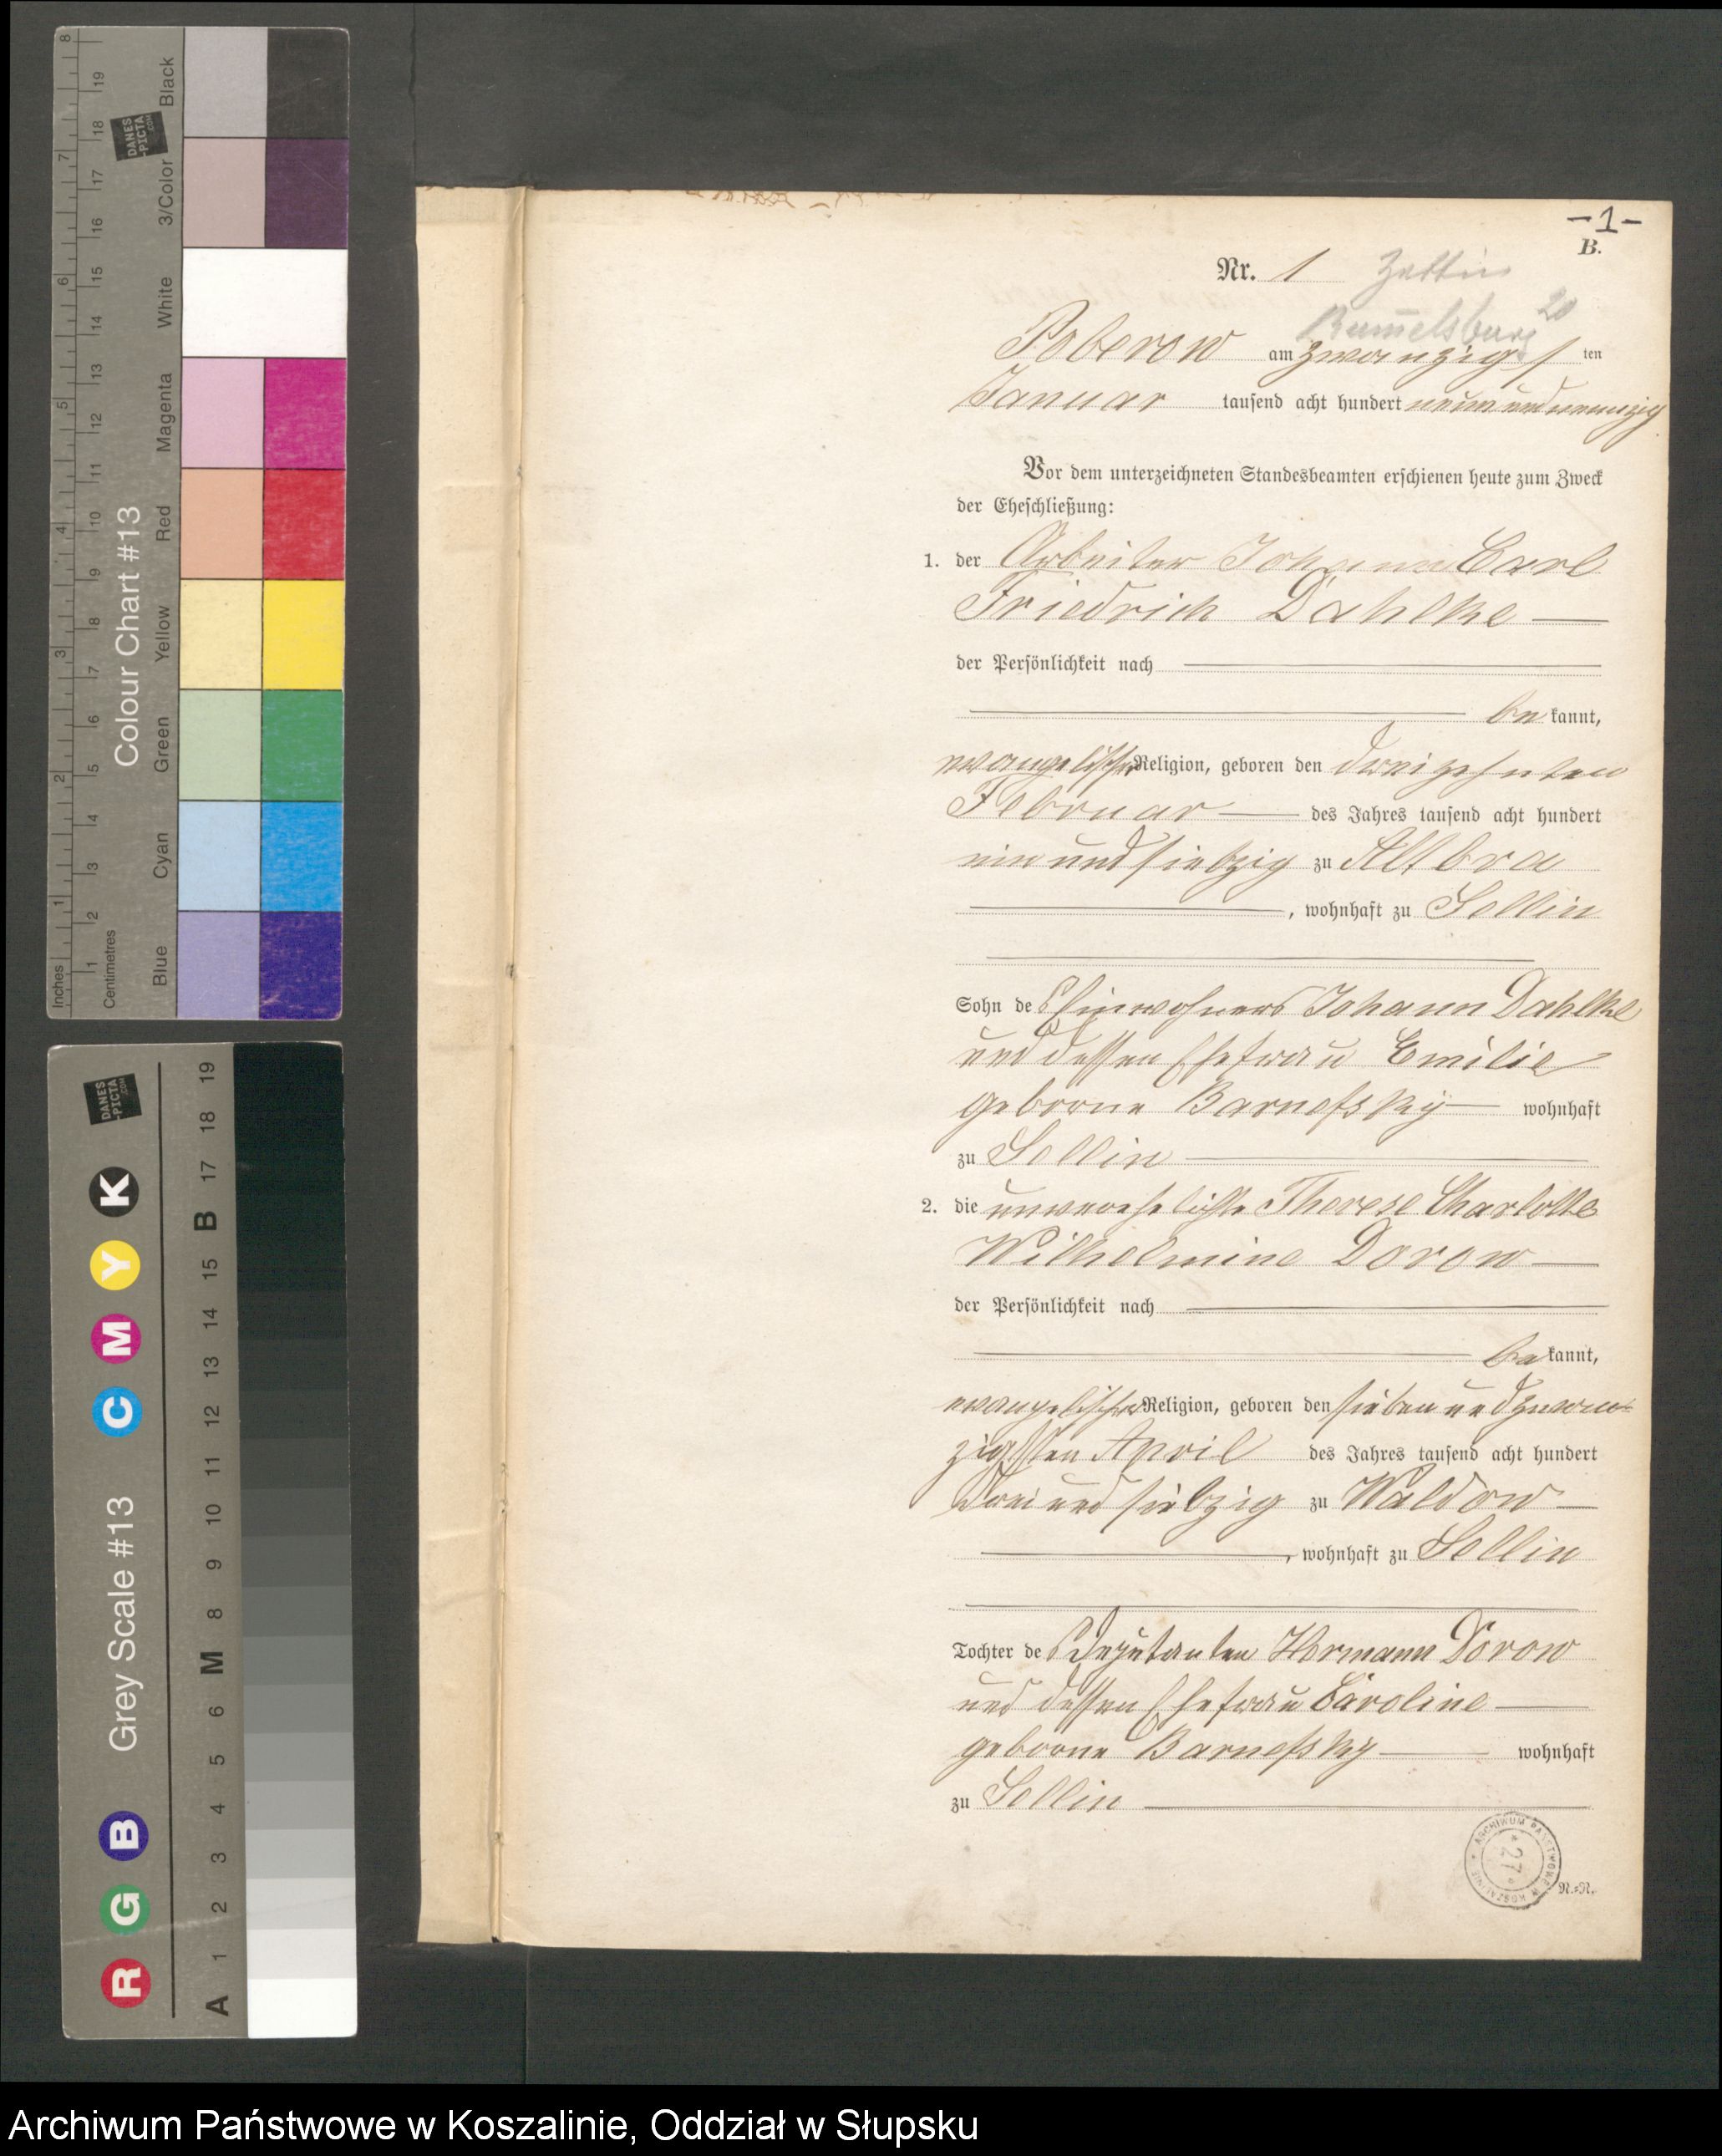 8
19
18
17
16
15
14
13
12
11
10
9
8
7
6
5
4
3
2
1
7
6
5
4
3
2
1
Inches
Centimetres
DANES
-PICTA
.COM
Colour Chart #13
Black
3/Color
White
Magenta
Red
Yellow
Green
Cyan
Blue
DANES
-PICTA
.COM
Grey Scale #13
R G B C M Y K
A 1 2 3 4 5 6 M 8 9 10 11 12 13 14 15 B 17 18 19
-1-
B.
Nr. 1 Zettin
Rummelsburg 20
Poberow am zwanzigsten
Januar tausend acht hundert neunundneunzig
Vor dem unterzeichneten Standesbeamten erschienen heute zum Zweck
der Eheschließung:
1. der Arbeiter Johann Carl
Friedrich Dahlke
der Persönlichkeit nach
be kannt,
evangelischer Religion, geboren den dreizehnten
Februar des Jahres tausend acht hundert
ein und siebzig zu
, wohnhaft zu Sellin
Sohn des Einwohners Johann Dahlke
und dessen Ehefrau Emilie
geborne Barnefsky wohnhaft
zu Sellin
2. die unverehelichte Therese Charlotte
Wilhelmine Dorow
der Persönlichkeit nach
be kannt,
evangelischer Religion, geboren den sieben und zwan-
zigsten April des Jahres tausend acht hundert
drei und siebzig zu Waldow
, wohnhaft zu Sellin
Tochter des Deputanten Hermann Dorow
und dessen Ehefrau Caroline
geborne Barnefsky wohnhaft
zu Sellin
ARCHIWUM PAŃSTWOWE W KOSZALINIE
27
N.=N.
Archiwum Państwowe w Koszalinie, Oddział w Słupsku